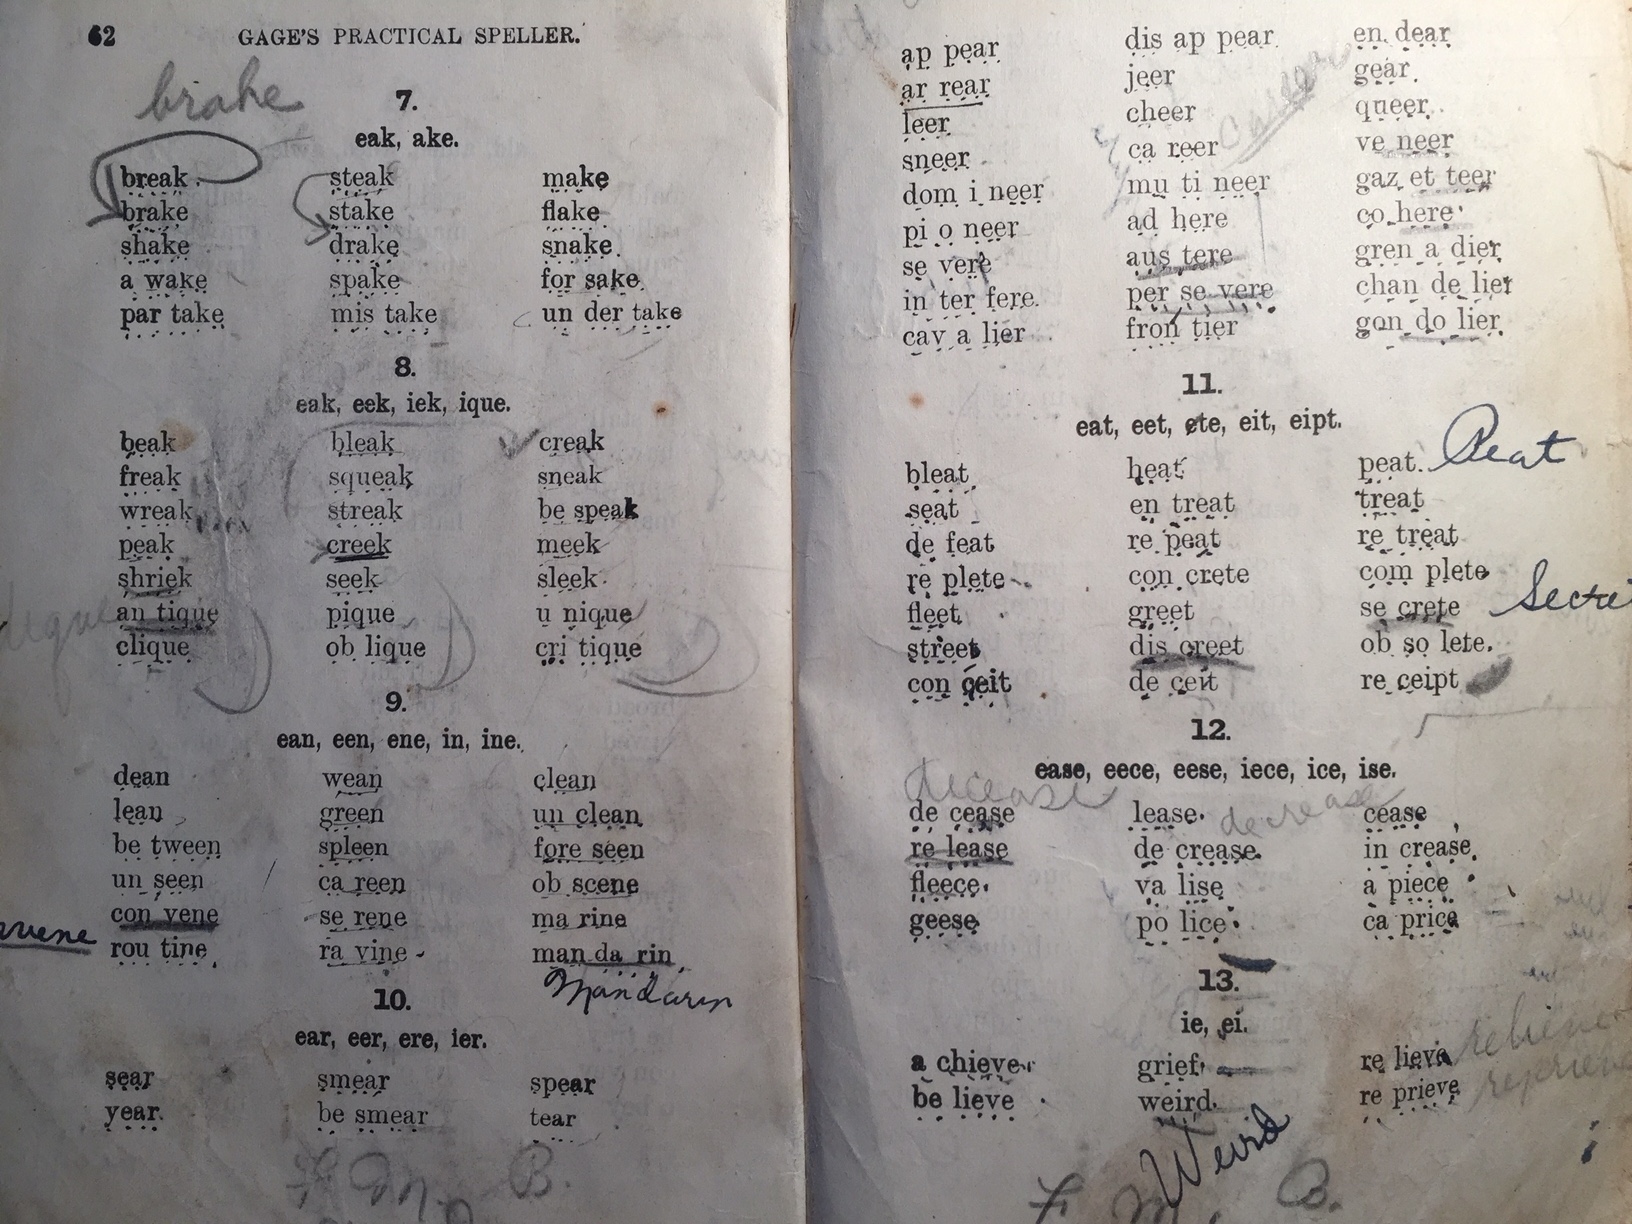 62 GAGE'S PRACTICAL SPELLER.
brake
7.
eak, ake.
break steak make
brake stake flake
shake drake snake
a wake spake for sake
par take mis take un der take
8.
eak, eek, iek, ique.
beak bleak creak
freak squeak sneak
wreak streak be speak
peak creek meek
shriek seek sleek
an tique pique u nique
clique ob lique cri tique
9.
ean, een, ene, in, ine.
dean wean clean
lean green un clean
be tween spleen fore seen
un seen ca reen ob scene
con vene se rene ma rine
rou tine ra vine man da rin
Mandarin
10.
ear, eer, ere, ier.
sear smear spear
year be smear tear
B.
ap pear dis ap pear en dear
ar rear jeer gear
leer cheer queer
sneer ca reer ve neer
career
dom i neer mu ti neer gaz et teer
pi o neer ad here co here
se vere aus tere gren a dier
in ter fere per se vere chan de lier
cav a lier fron tier gon do lier
11.
eat, eet, ete, eit, eipt.
bleat heat peat Peat
seat en treat treat
de feat re peat re treat
re plete con crete com plete
fleet greet se crete
street dis creet ob so lete
con ceit de ceit re ceipt
12.
ease, eece, eese, iece, ice, ise.
decease
de cease lease cease
decrease
re lease de crease in crease
fleece va lise a piece
geese po lice ca price
13.
ie, ei.
a chieve grief re lieve
be lieve weird re prieve
Weird
F. M. B.